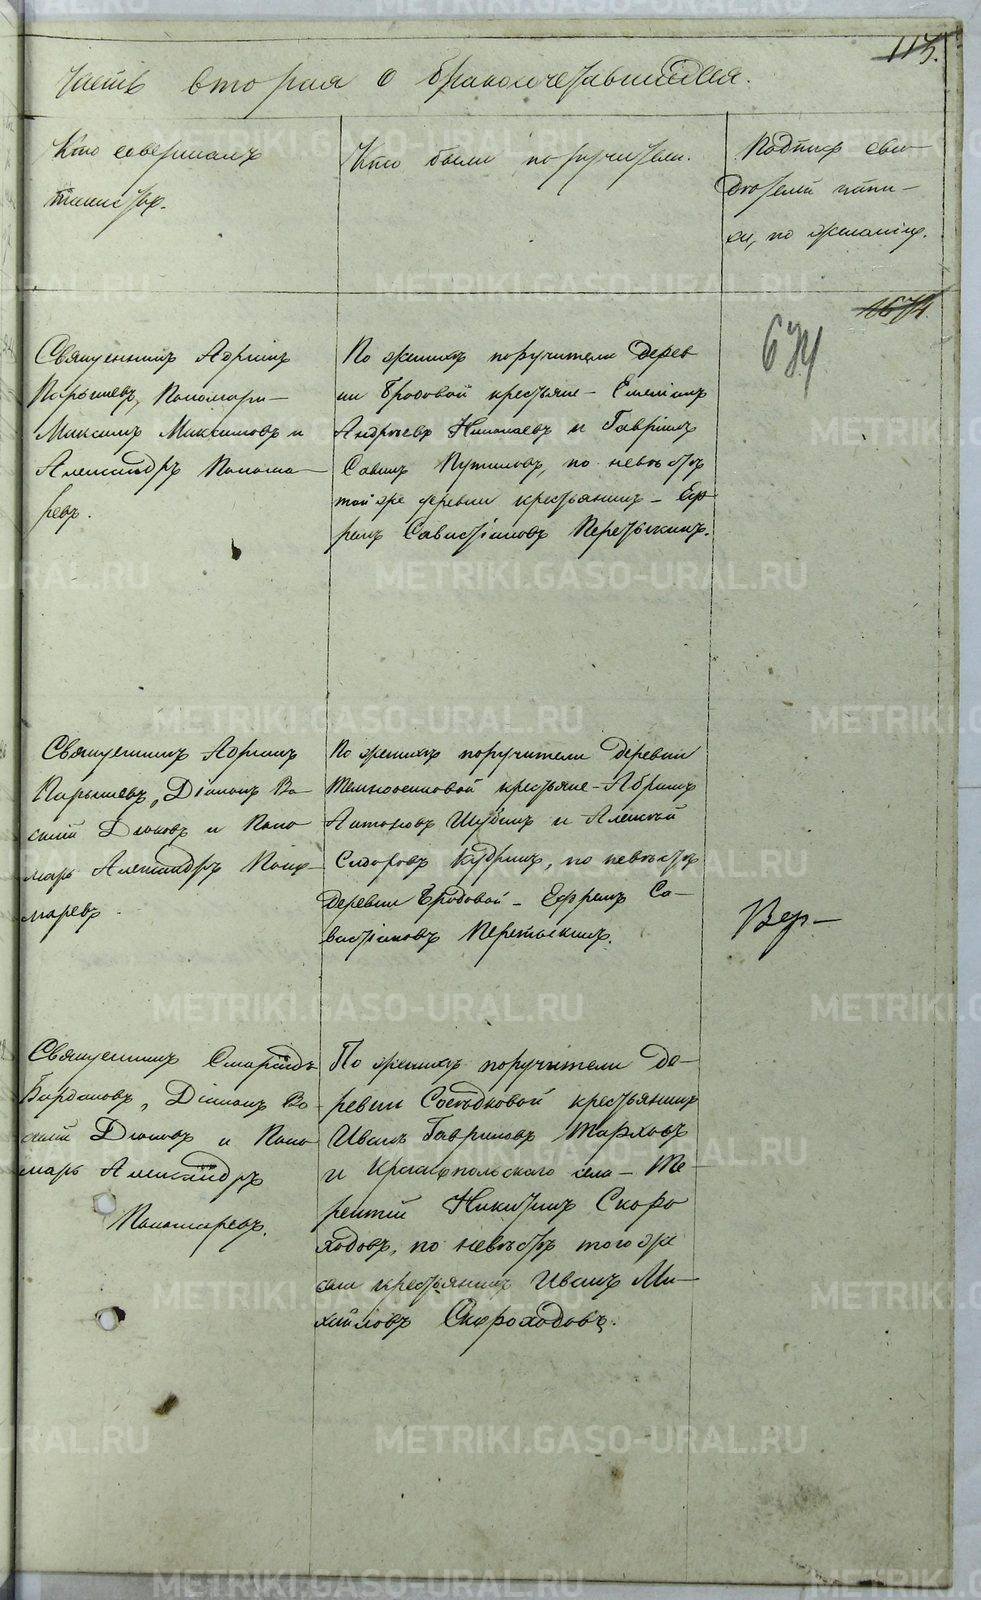 113.
Часть вторая о бракосочетавшихся.
Кто совершалъ
таинство.
Кто были поручители.
Подпись сви-
дѣтелей
по желанію.
1674.
674
Священникъ Адріанъ
Парышевъ, Пономари-
Максимъ Максимовъ и
Александръ Понома-
ревъ.
По женихѣ поручители дерев
ни Бродовой крестьяне -
Андреевъ Николаевъ и Гавріилъ
Савинъ Путиловъ, по невѣстѣ
той же деревни крестьянинъ - Еф
ремъ Савастіановъ Перетыкинъ.
Священникъ Адріанъ
Парышевъ, Діаконъ Ва-
силій Дюковъ и Поно
марь Александръ Поно-
маревъ.
По женихѣ поручители деревни
Темноосиновой крестьяне - Абрамъ
Антоновъ Шубинъ и Алексѣй
Сидоровъ Кудринъ, по невѣстѣ
деревни Бродовой - Ефремъ Са-
вастіановъ Перетыкинъ.
Вер-
Священникъ Смарагдъ
Бардаковъ, Діаконъ Ва
силій Дюковъ и Поно
марь Александръ
Пономаревъ.
По женихѣ поручители де-
ревни Сосѣдковой крестьянинъ
Иванъ Гавриловъ Тарховъ
и Краснопольскаго села - Те-
рентій Никитинъ Скоро
ходовъ, по невѣстѣ того же
села крестьянинъ Иванъ Ми-
хайловъ Скороходовъ.
METRIKI.GASO-URAL.RU